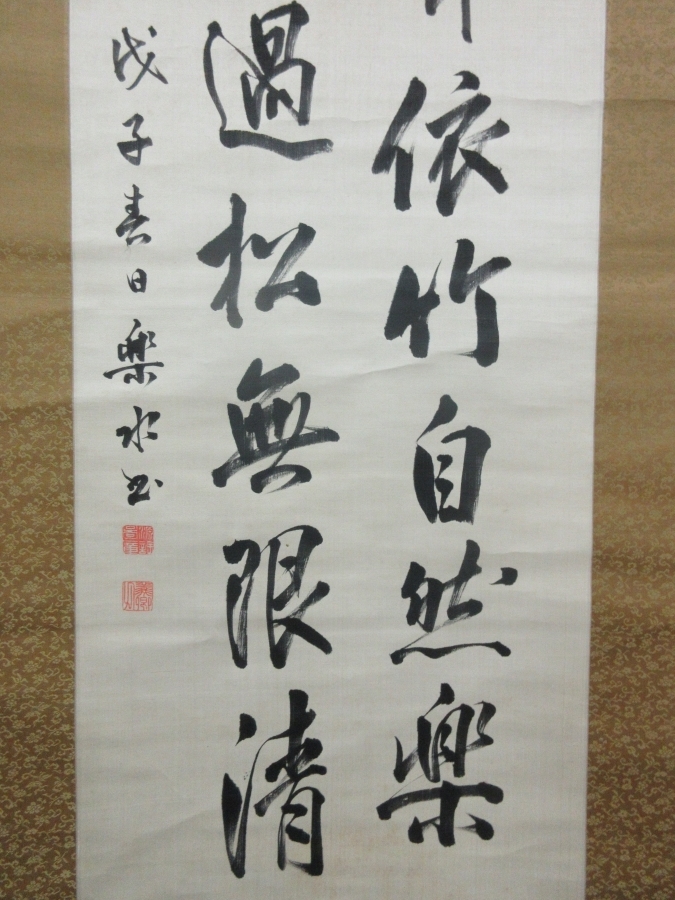 依竹自然樂
過松無限清
戊子春日樂水書